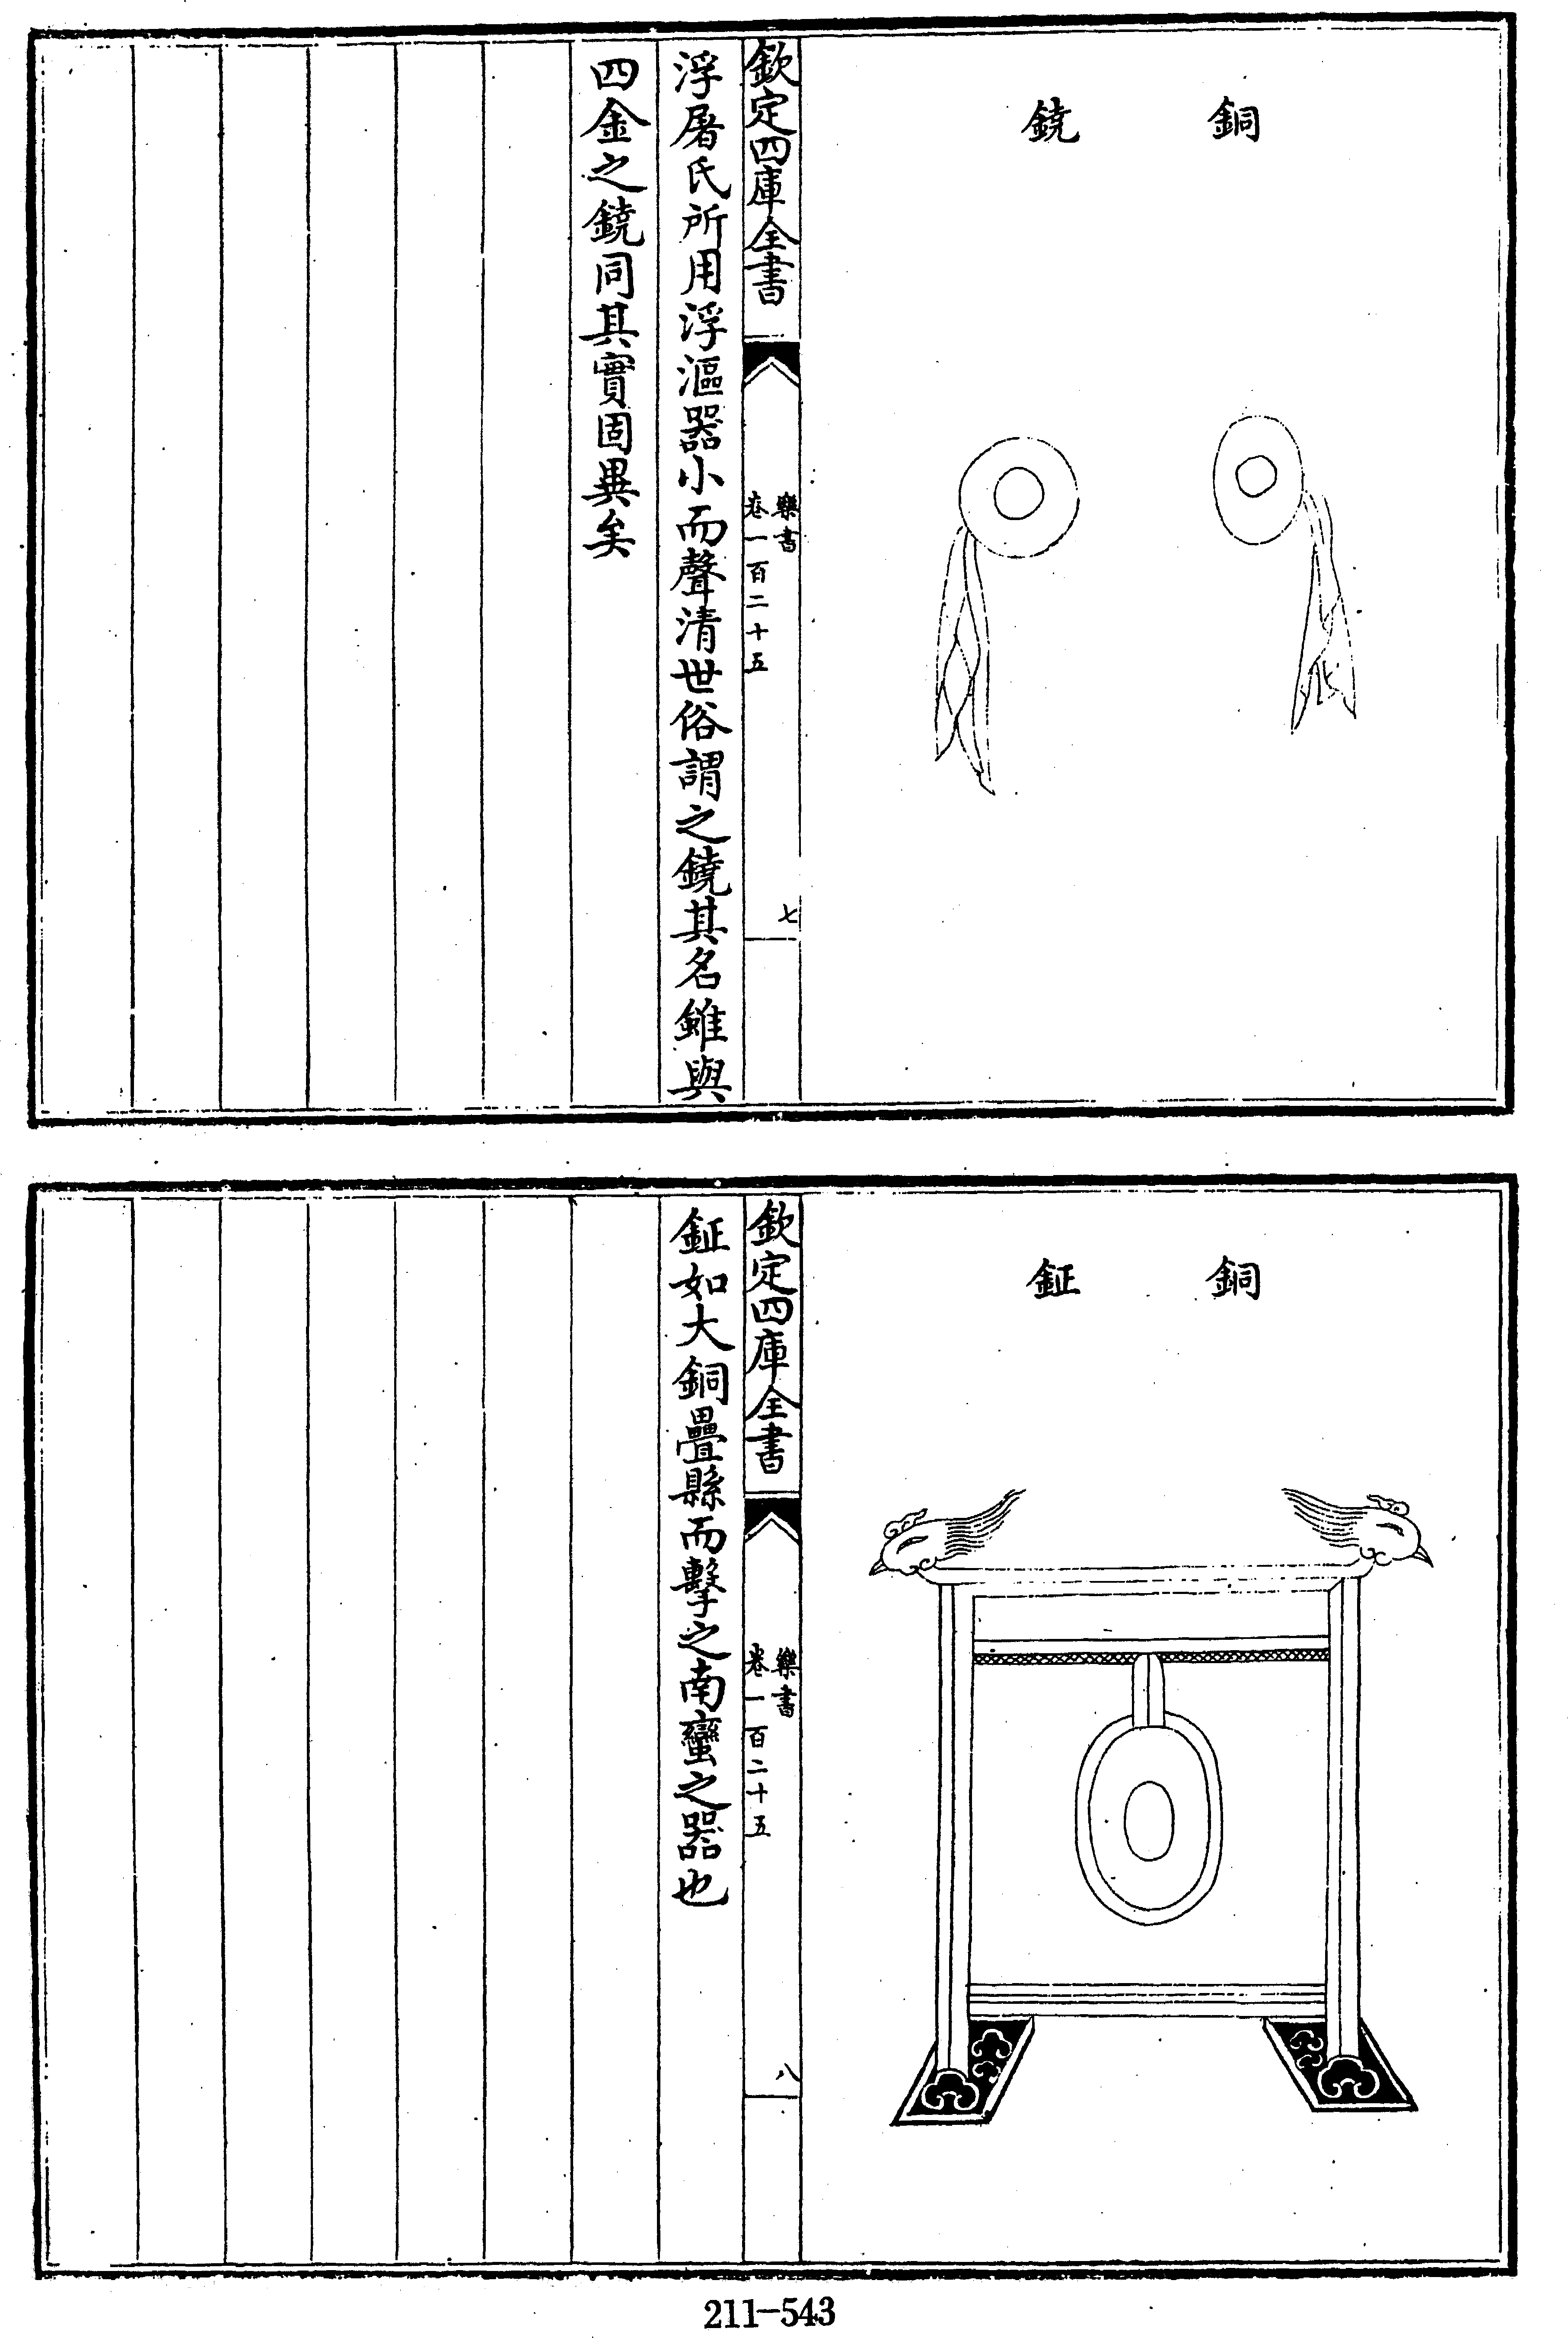 銅鐃
欽定四庫全書
樂書
卷一百二十五
七
浮屠氏所用浮漚器小而聲清世俗謂之鐃其名雖與
四金之鐃同其實固異矣
銅鉦
欽定四庫全書
樂書
卷一百二十五
八
鉦如大銅疊縣而擊之南蠻之器也
211-543